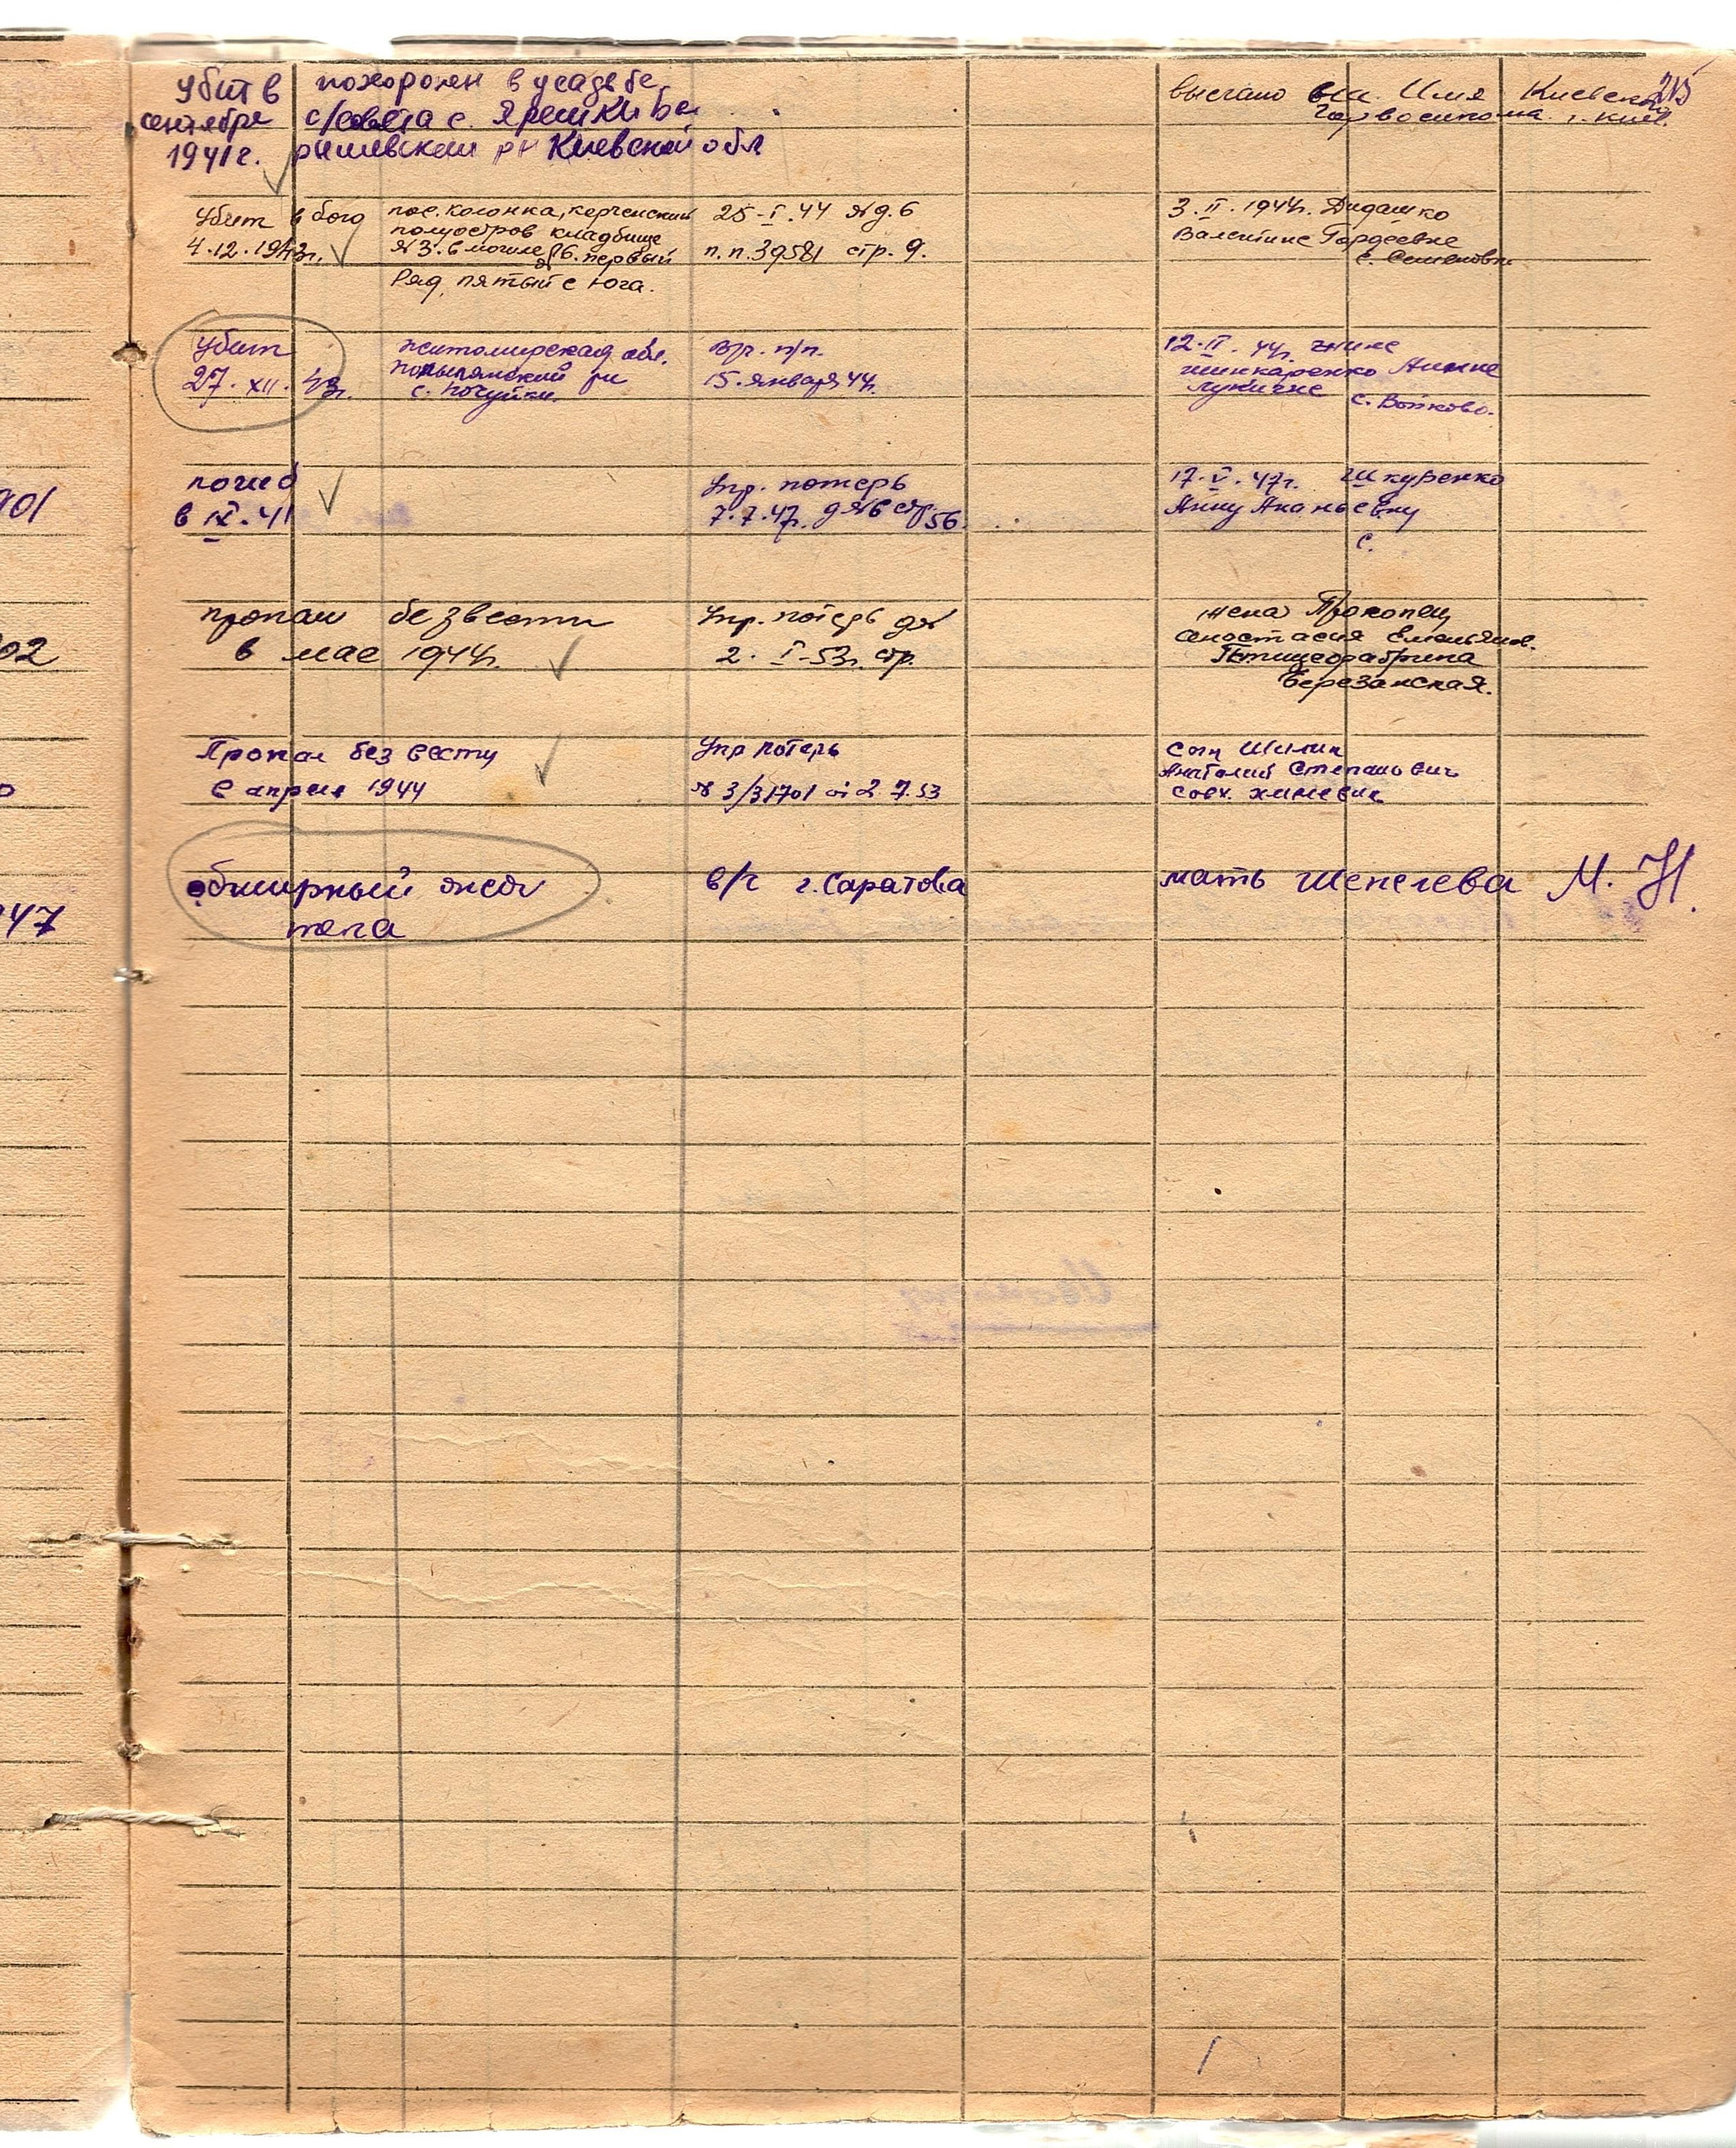 215
убит в
сентябре
1941 г.
похоронен в усадьбе
с/совета с. Ярешки Ве
рышевском рн Киевской обл
выслано на Имя Киевск
г. Киев.
убит в бою
4.12.1943г.
пос. колонка, керченский
полуостров кладбище
№3. в могиле №6. первый
Ряд, пятый с юга.
25-I.44 №д.6
п.п.39581 стр. 9.
3.II.1944г. Дидашко
Валентине Гордеевне
с. Семеновка
убит
27.XII.43г.
житомирская обл.
рн
с. Почуйки.
п/п.
15. января 44г.
12.II.44г. жине
шинкаренко Аннне
лукичне
с. Войково.
901
погиб
в IX.41
Упр. потерь
7.7.47г. д№6 стр. 56.
17.V.47г. Шкуренко
Анну Ананьевну
с.
02
пропал без вести
в мае 1944г.
Упр. потерь д№
2. I-53г. стр.
жена Прокопец
Анастасия Емельянов.
Птицефабрика
Березанская.
Пропал без вести
в апреле 1944
Упр потерь
№ 3/31701 от 2.7.53
сын Шилик
Анатолий Степанович
совх.
47
обширный ожог
тела
в/г г. Саратова
мать Шепелева М. Н.